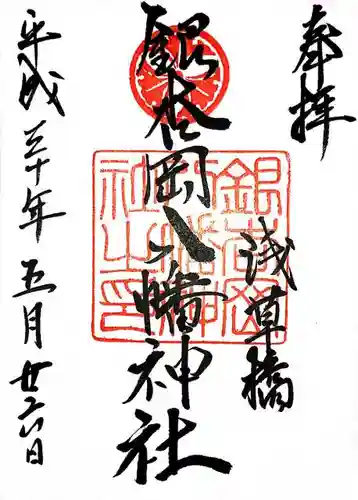 奉拝
浅草橋
銀杏岡八幡神社
平成三十年五月廿六日
銀杏岡八幡神社之印